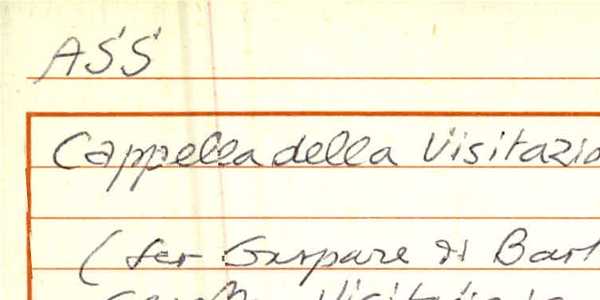 ASS
Cappella della Visitazio
(ser Gaspare di Bart
Visitazio